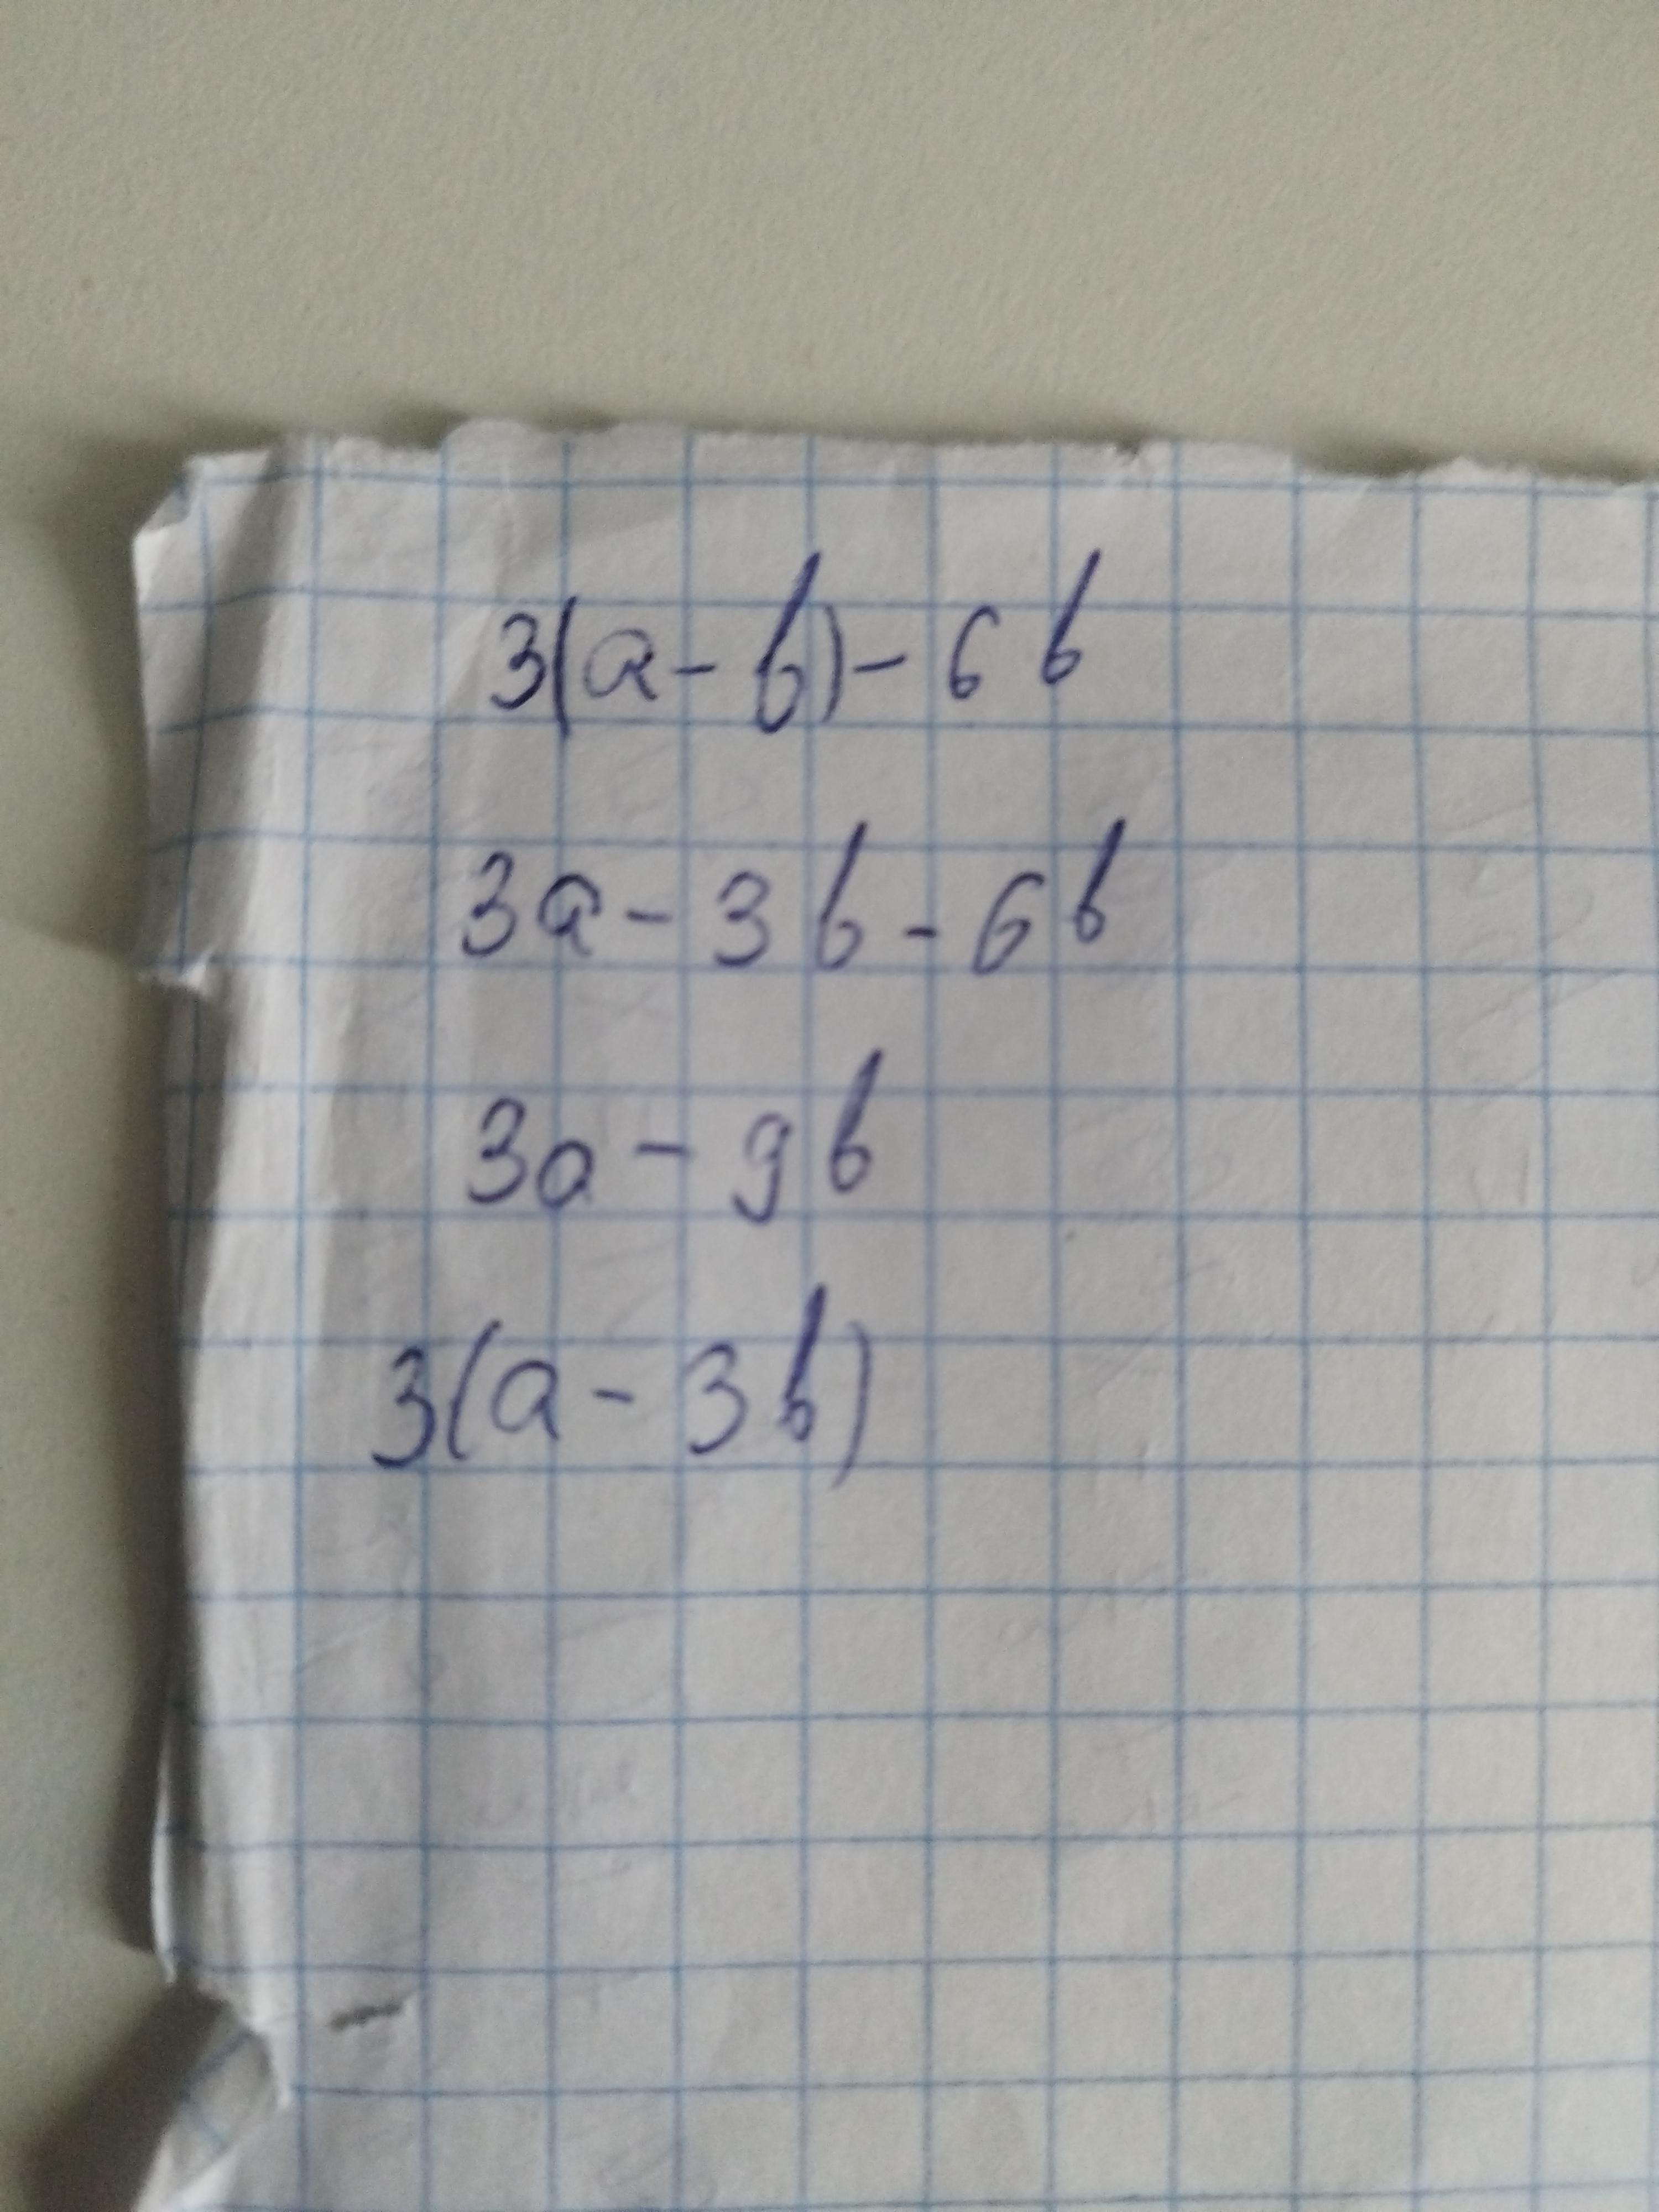 3(a-b)-6b
3a-3b-6b
3a-9b
3(a-3b)